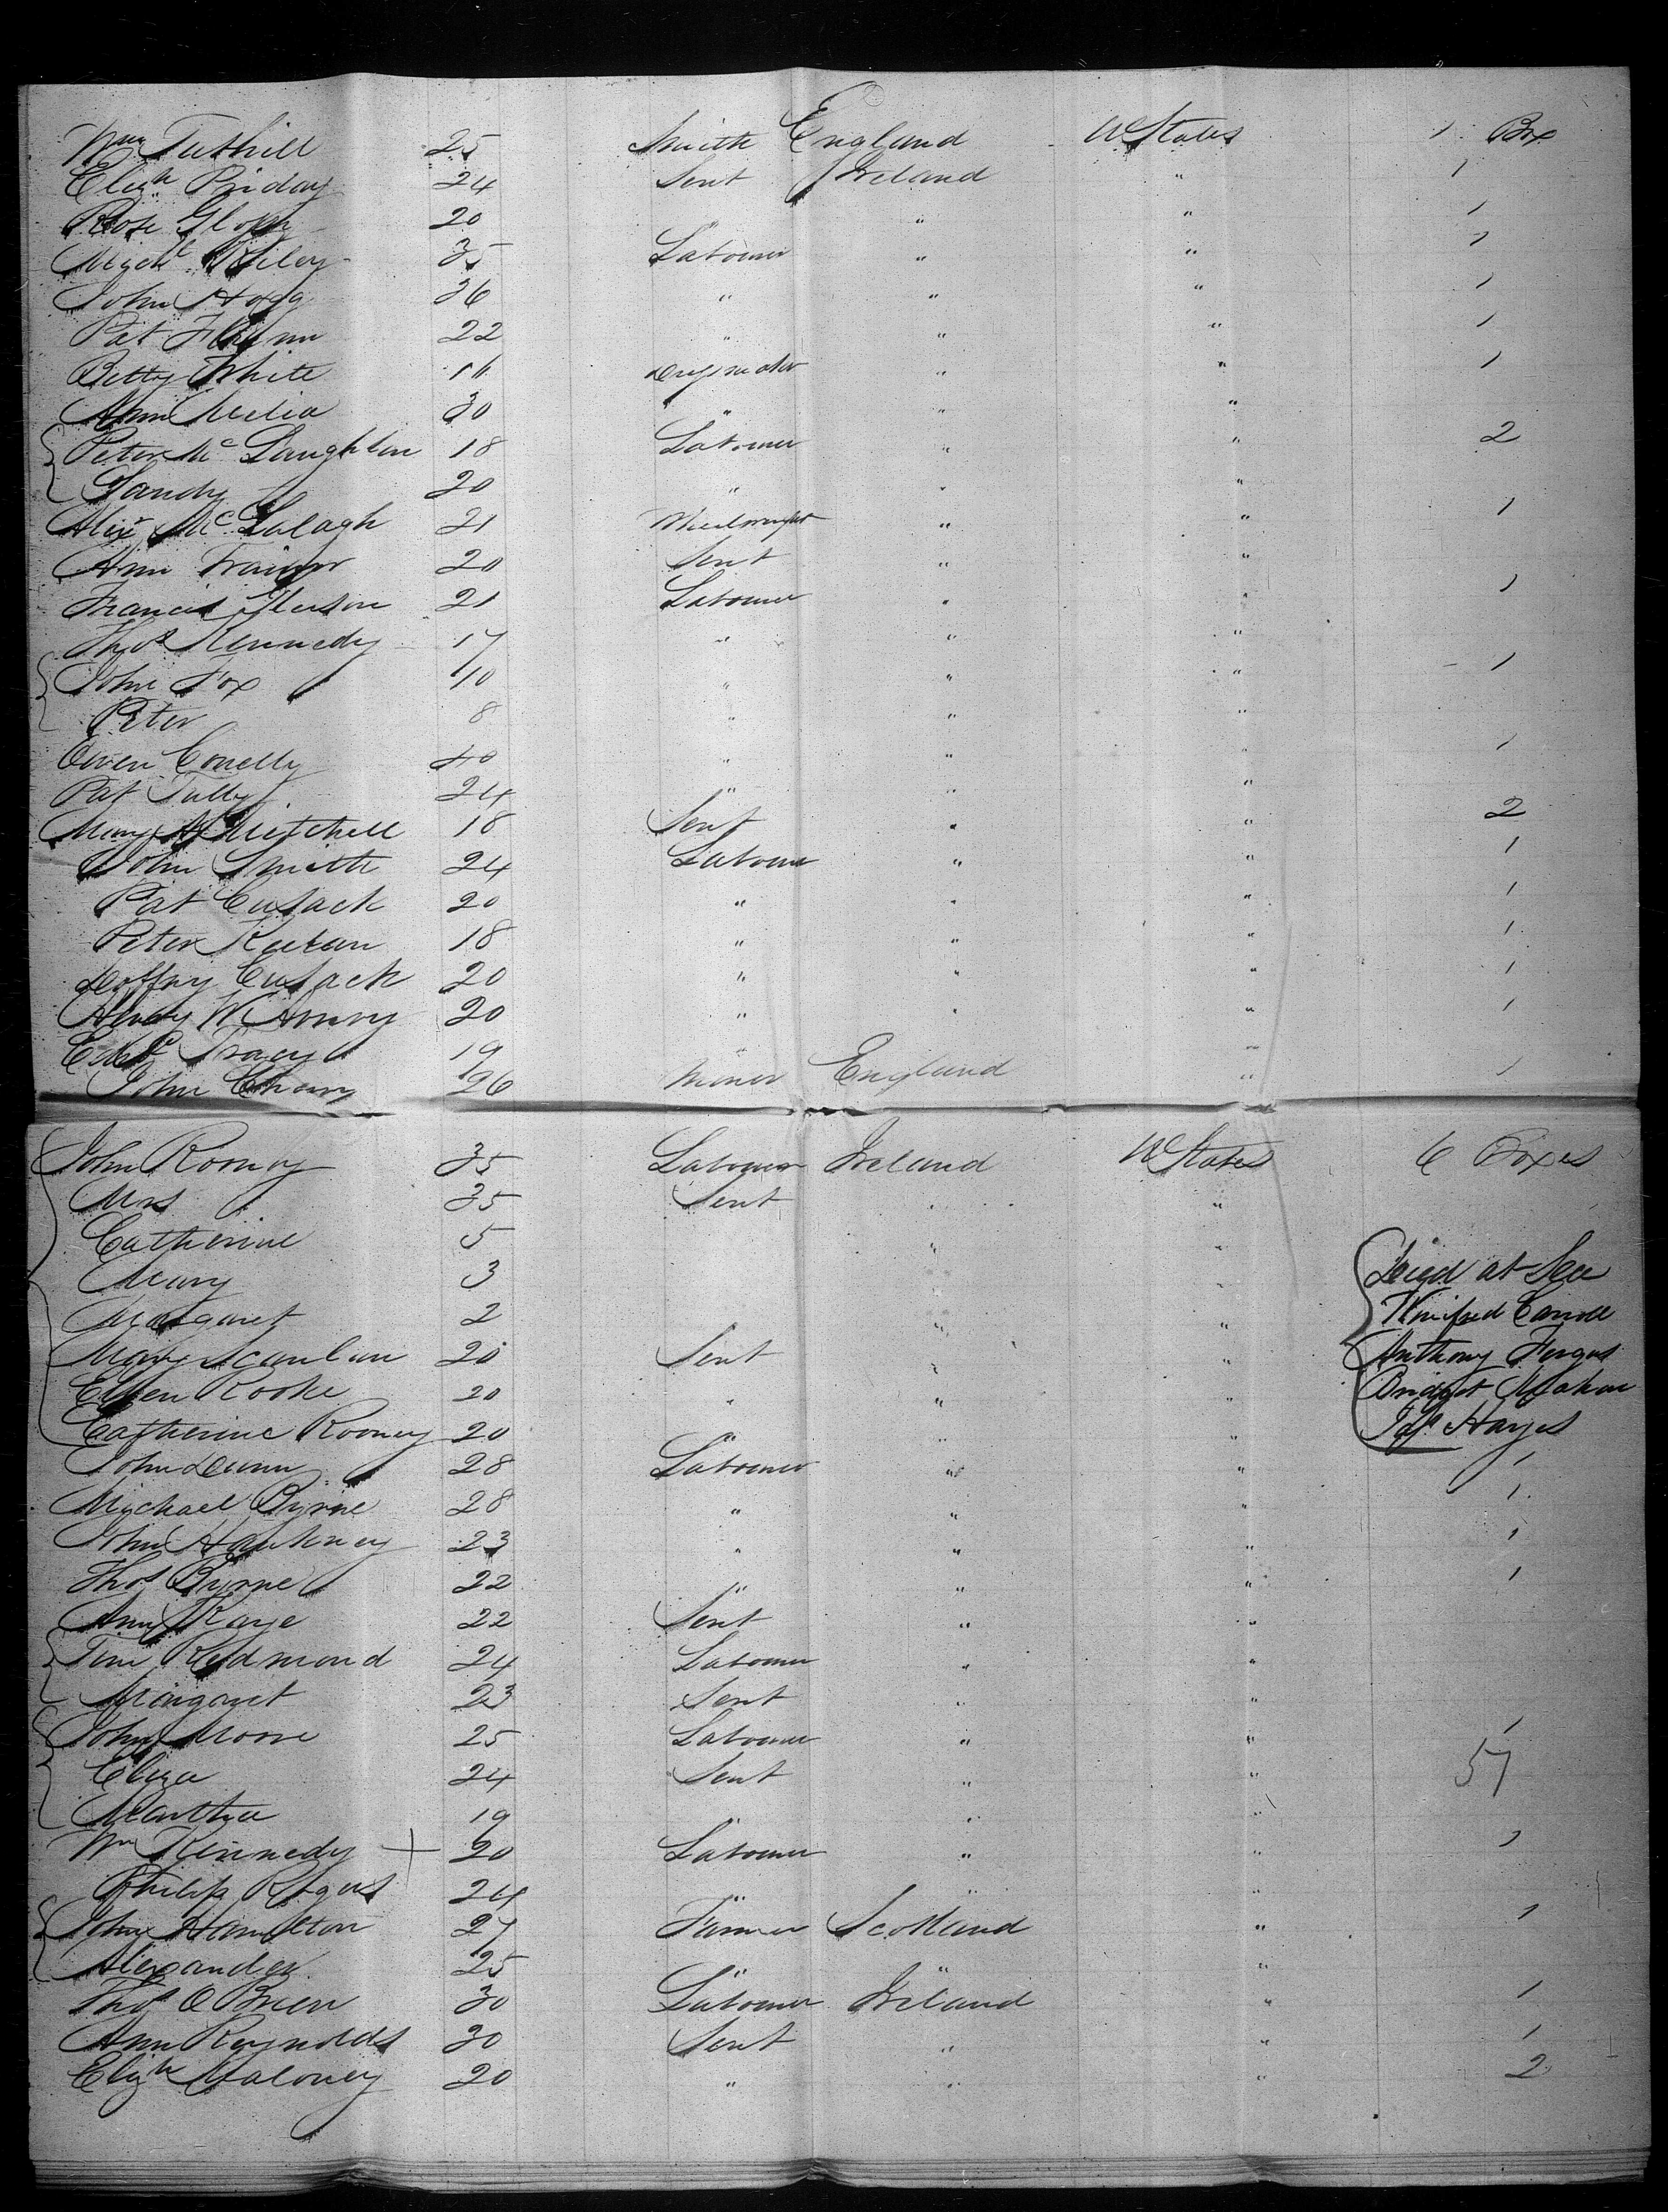 Wm Tuthill 25 Smith England U States 1 Box
Elizh Priday 24 Sent Ireland " 1
Rose 20 " " " 1
Michl Riley 35 Labourer " " 1
John Hogg 36 " " " 1
Pat Flynn 22 " " " 1
Betty White 16 Dressmaker " " 1
Ann Melia 30 " " "
Peter Mc Laughlin 18 Labourer " " 2
Sandy 20 " " "
Alexr Mc Lalagh 21 Wheelwright " " 1
Ann Trainor 20 Sent " "
Francis 21 Labourer " " 1
Thos Kennedy 17 " " "
John Fox 10 " " " 1
Peter 8 " " "
Owen Conelly 40 " " " 1
Pat Tully 24 " " "
Mary A Mitchell 18 Sent " " 2
John Smith 24 Labourer " " 1
Pat Cusack 20 " " " 1
Peter Keelan 18 " " " 1
Cusack 20 " " " 1
20 " " " 1
Tracy 19 " "
John 26 Miner England " 1
John Rooney 35 Labourer Ireland U States 6 Boxes
Mrs 35 Sent " "
Catherine 5 " "
Mary 3 " "
Margaret 2 " "
Mary Scanlan 20 Sent " "
Ellen Rooke 20 " " "
Catherine Rooney 20 " " "
Died at Sea
Winifred Carroll
Anthony Fergus
Bridget Mahon
Jas Hayes
John Dunn 28 Labourer " " 1
Michael Byrne 28 " " " 1
John Hackney 23 " " " 1
Thos Byrne 22 " " " 1
Ann Kaye 22 Sent " "
Tim Redmond 24 Labourer " "
Margaret 23 Sent " "
John Moore 25 Labourer " " 1
Eliza 24 Sent " " 57
Martha 19 " " "
Wm Kennedy + 20 Labourer " " 1
Philip Rogers 24 " " "
John Hamilton 27 Farmer Scotland " 1
Alexander 25 " " "
Thos O Brien 30 Labourer Ireland " 1
Ann Reynolds 30 Sent " " 1
Elizh Maloney 20 " " " 2